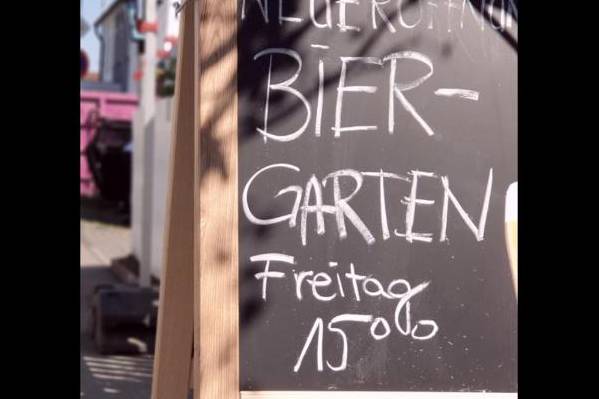 NEUERÖFFNUN
BIER-
GARTEN
Freitag
15⁰⁰